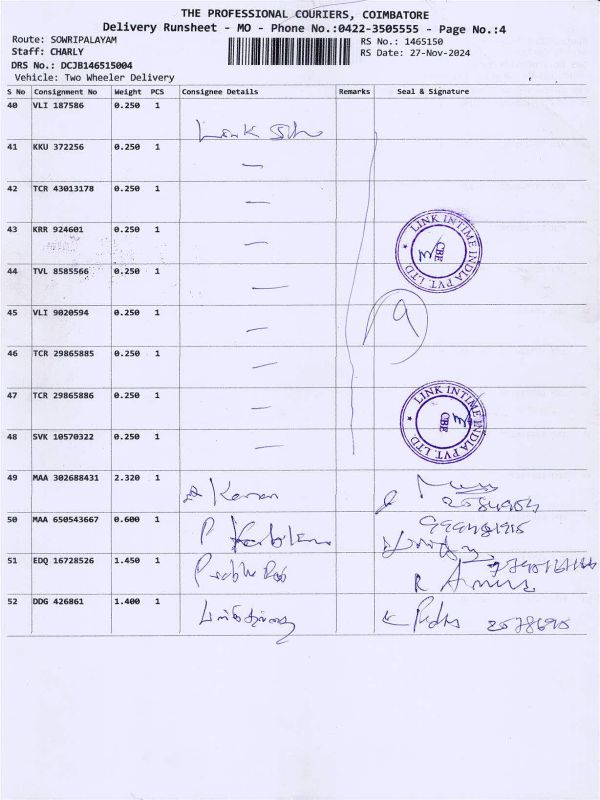 THE PROFESSIONAL COURIERS, COIMBATORE
Delivery Runsheet - MO - Phone No.:0422-3505555 - Page No.:4
Route: SOWRIPALAYAM
RS No.: 1465150
Staff: CHARLY
RS Date: 27-Nov-2024
DRS No.: DCJB146515004
Vehicle: Two Wheeler Delivery
S No Consignment No Weight PCS Consignee Details Remarks Seal & Signature
40 VLI 187586 0.250 1
41 KKU 372256 0.250 1
42 TCR 43013178 0.250 1
43 KRR 924601 0.250 1
LINK INTIME INDIA PVT. LTD.
CBE
44 TVL 8585566 0.250 1
45 VLI 9020594 0.250 1
9
46 TCR 29865885 0.250 1
47 TCR 29865886 0.250 1
LINK INTIME INDIA PVT. LTD.
CBE
48 SVK 10570322 0.250 1
49 MAA 302688431 2.320 1
50 MAA 650543667 0.600 1
51 EDQ 16728526 1.450 1
52 DDG 426861 1.400 1